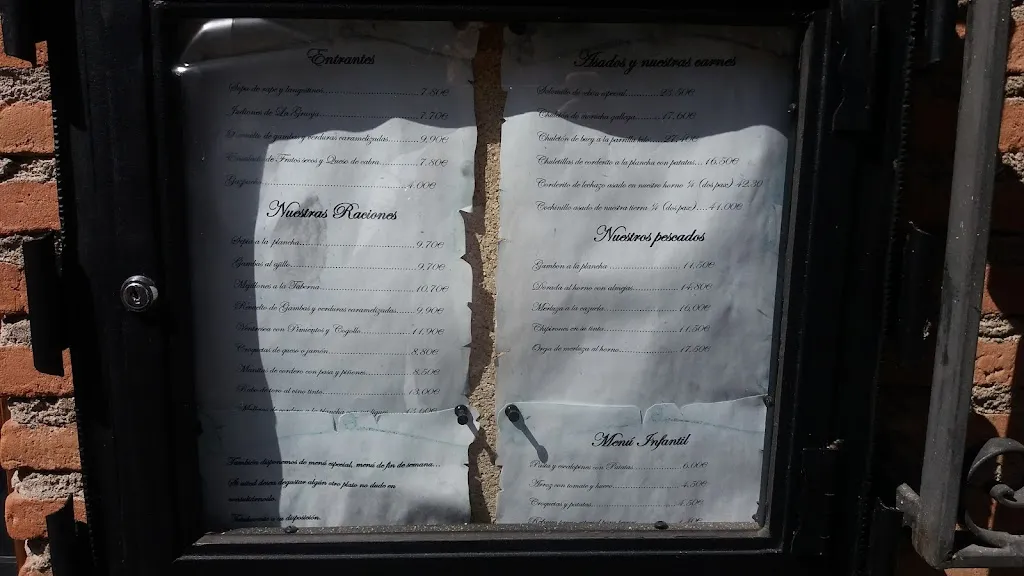 Entrantes
Sopa de ave y bogavante 7.80€
Judiones de La Granja 7.70€
Revuelto de gambas y verduras caramelizadas 9,90€
Ensalada de Frutos secos y Queso de cabra 7.80€
Gazpacho 4.00€
Nuestras Raciones
Sepia a la plancha 9,70€
Gambas al ajillo 9,70€
Mejillones a la Taberna 10,70€
Revuelto de Gambas y verduras caramelizadas 9,90€
Ventresca con Pimientos y Cogollo 11,90€
Croquetas de queso o jamón 8,80€
Manitas de cordero con pasa y piñones 8,50€
Rabo de toro al vino tinto 13,00€
a la plancha
También disponemos de menú especial, menú de fin de semana...
Si usted desea degustar algún otro plato no dude en
consultárnoslo.
disposición.
Asados y nuestras carnes
Solomillo de choto especial
Chuletón de ternera gallega 17,60€
Chuletón de buey a la parrilla kilo
Chuletillas de corderito a la plancha con patatas 16,50€
Corderito de lechazo asado en nuestro horno ¼ (dos pax) 42,30
Cochinillo asado de nuestra tierra ¼ (dos pax) 41,00€
Nuestros pescados
Gambon a la plancha 14,50€
Dorada al horno con almejas 14,80€
Merluza a la cazuela 16,00€
Chipirones en su tinta 11,50€
Oreja de merluza al horno 17,50€
Menú Infantil
Pasta y escalopines con Patatas 6,00€
Arroz con tomate y huevo 4,50€
Croquetas y patatas 4,50€